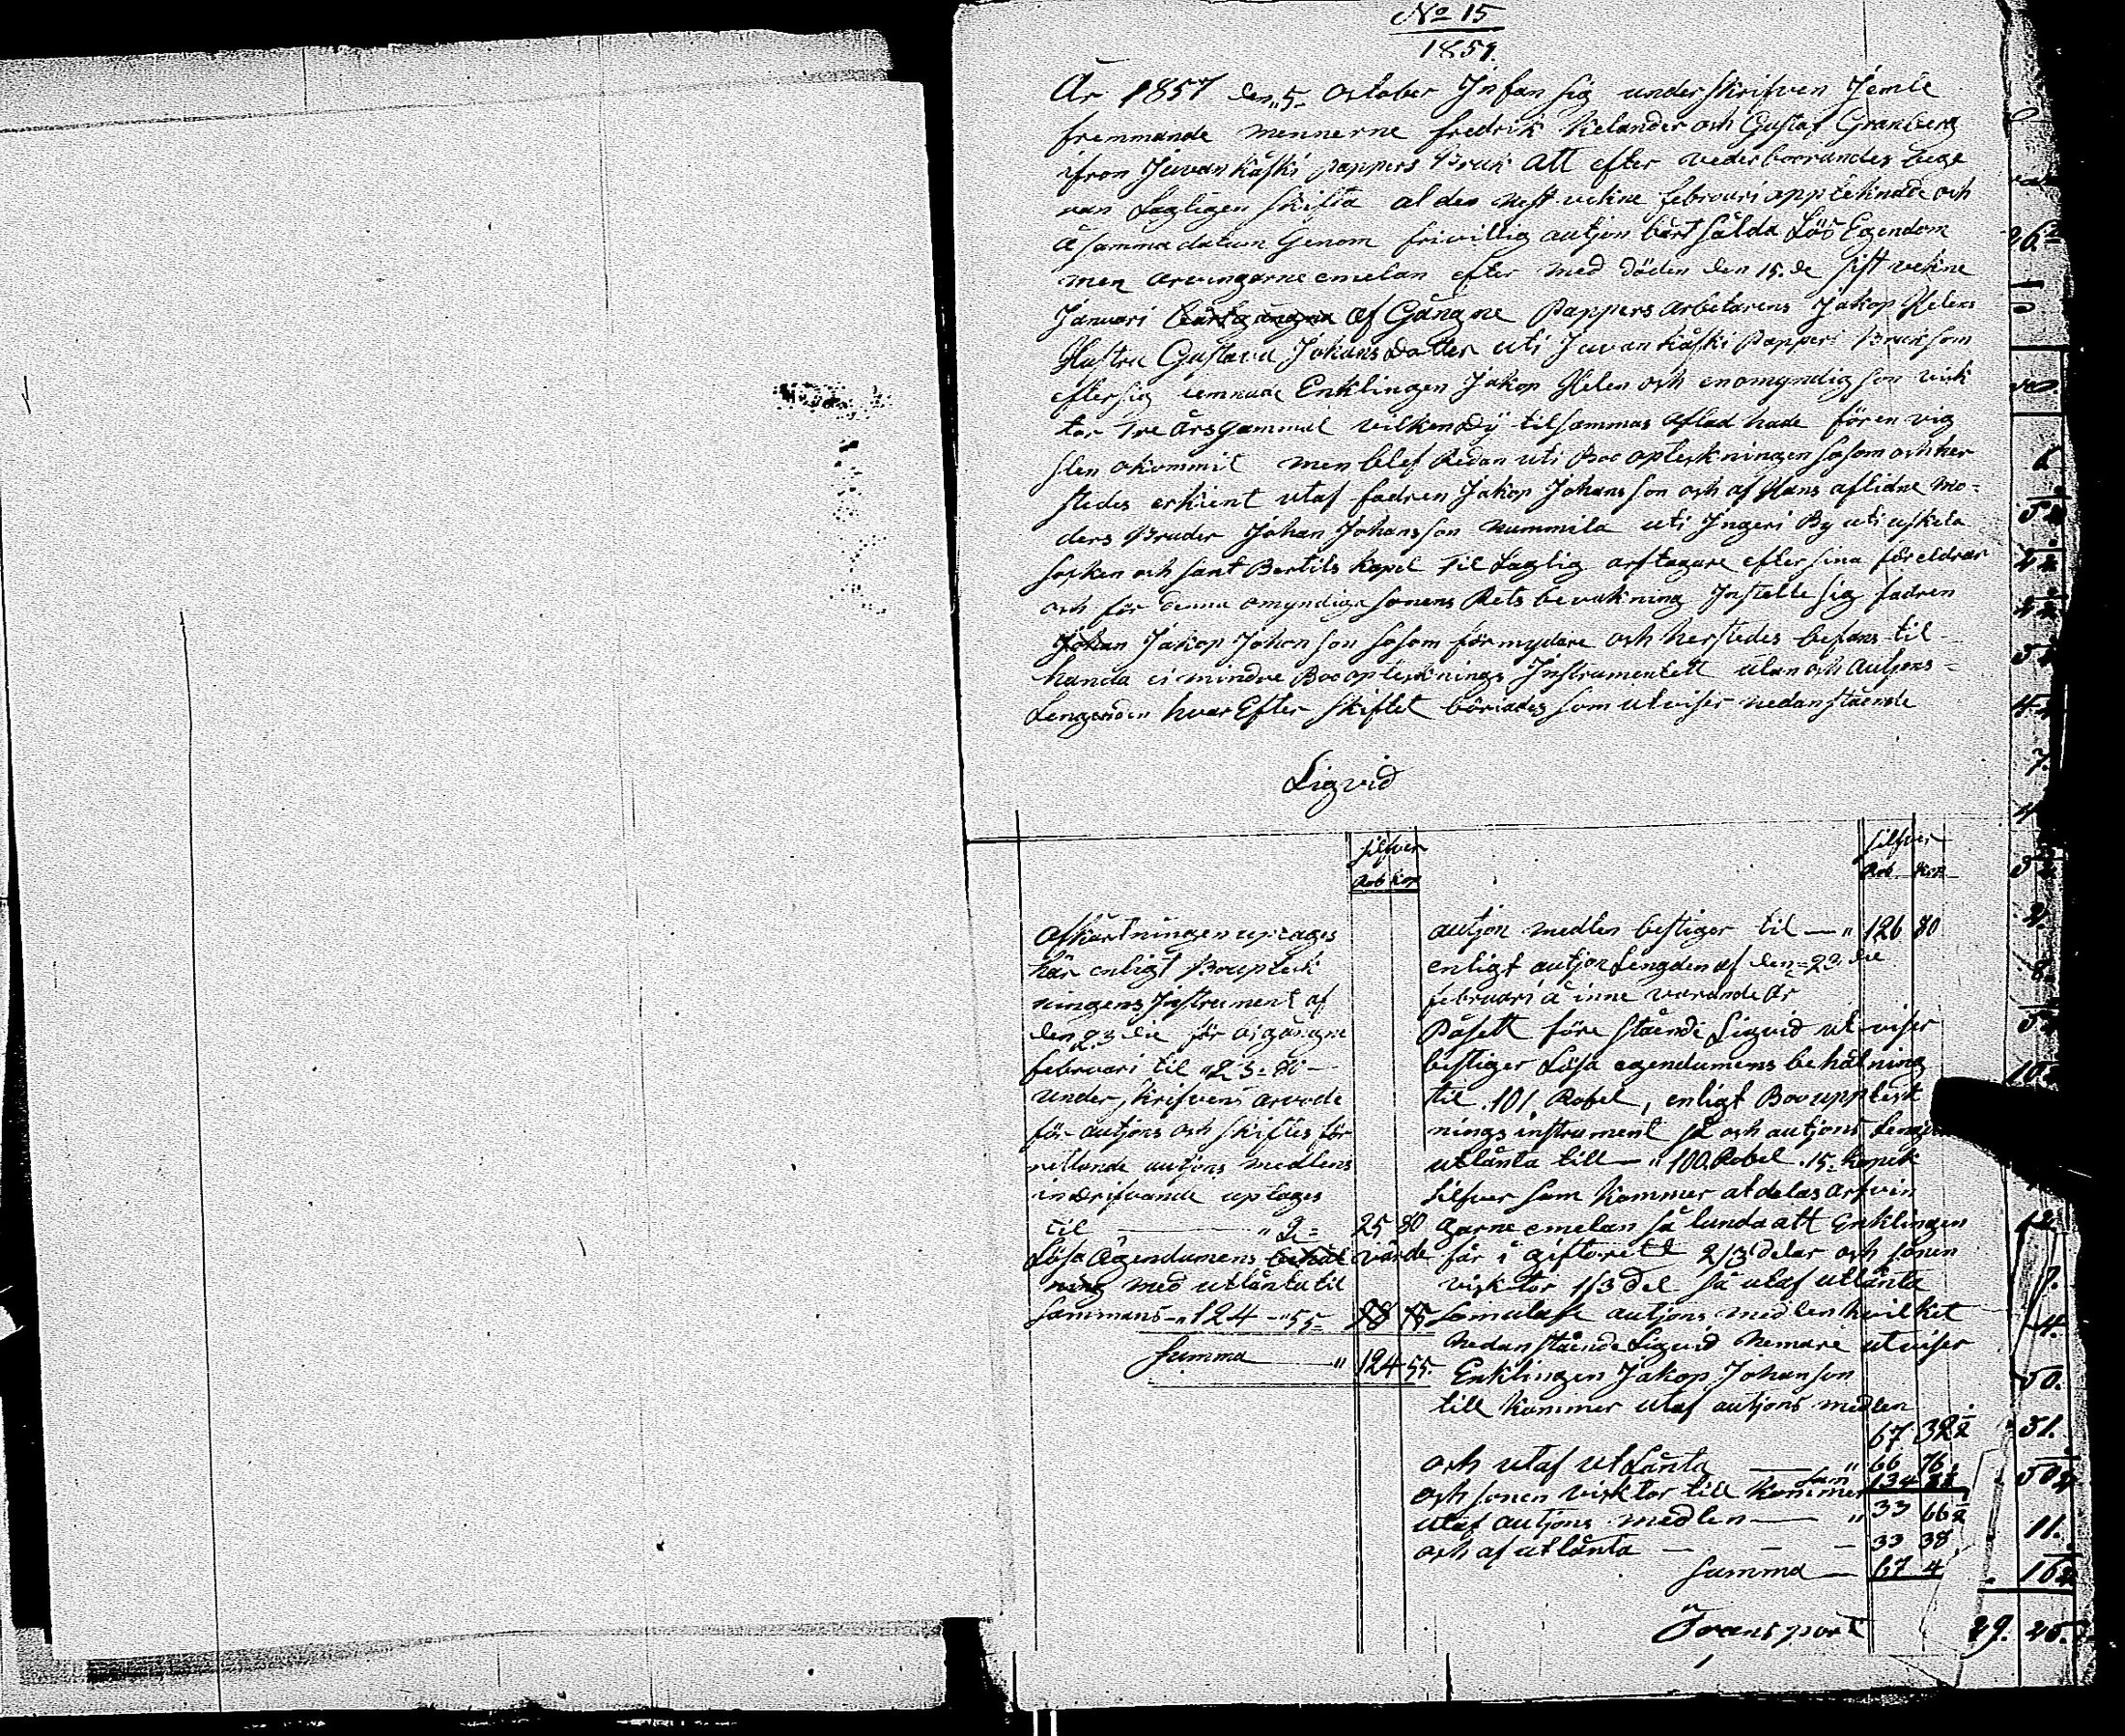 No 15
1857.
År 1857 den 5 October Infan sig underskrifven Jemte
fremmande mennerne fredrik Kelander och Gustaf Granberg
ifron Juvankåski pappers Bruk att efter vederboorandes bege
ran Lagligen skifta al den nest vekne februari optecknade och
å samma datum Genom frivillig autjon bårt sålda Lös Egendom
men arvingarne emelan efter med döden den 15. de sist vekne
Januari af Gångne Pappers arbetarens Jakop Helens
Hustru Gustava Johans dotter uti Juvankåski Pappers Bruk som
efter sig lemnade Enklingen Jakop Helen och en omyndig son vik
tor Tre års gammal vilken dÿ tilsammas aflad hade för en vig
slen okommit men blef Redan uti Boo opteskningen såsom och her
stedes erkient utaf fadren Jakop Johansson och af Hans aflidne mo-
ders Bruder Johan Johansson Nummila uti Ingeri By uti uskela
socken och sant Bertils kapel Til Laglig arftagare efter sina föreldrar
och för denna omyndiga sonens Rets bevakning Instelte sig fadren
Johan Jakop Johan son såsom förmydare och herstedes befans til-
handa ei mindre Boo opteknings Instrumentett utan och autjons-
Lengenden hvar Efter skiftet böriades som utviser nedanstående
Ligvid
silfver
Rob kop
silfver
Rob kop
Afkårtningen uptages
här enligt Boupteck
ningens Instrument af
den 23 die för afgångne
februari til 23-80-
underskrifvens arvode
för autjons och skiftes för
rettande autjons medlens
indrifvande uptages
til " 2- 25 80
Lösa Ägendumens behål värde
ning med utlånta til
sammans " 124 " 55-
Summa " 124 55.
autjon medlen bestiger til " 126 80
enligt autjon Lengden af den 23 die
februari å inne varande år
Påsett före stående Ligvid utviser
bestiger Lösa egendumens behålning
til 101 Robel, enligt Boouppteck
nings instrument så och autjons Lengden
utlånta till " 100 Robel 15. kopek
silfver som kommer at delas arfvin
garne emelan så lunda att Enklingen
får i giftorett 2/3 delar och sonen
visktor 1/3 del så utaf utlånta
som utaf autjons medlen hvilket
nedanstående Ligvid nemare utviser
Enklingen Jakop Johanson
till kommer utaf autjons medlen
67 32
och utaf utlånta " 66 76
Sum 134
och sonen visktor till kommer
utaf autjons medlen " 33 66
och af utlånta 33 38
Summa 67 4
Transport
29. 25.